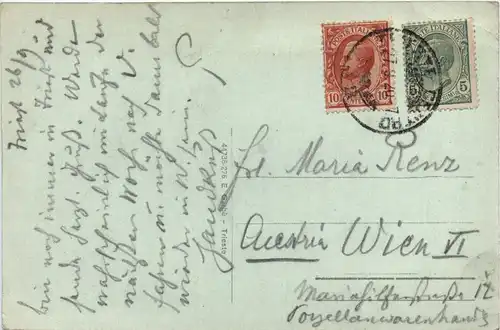 Triest 26/9
bin noch immer in Triest und
sende herzl. Gruß. Werde
wahrscheinlich im Laufe der
nächsten Woche nach V.
fahren u. möchte dann bald
wieder in Wien sein.
Handkuß
44738-276 E
Trieste
POSTE ITALIANE
10 10
POSTE ITALIANE
5 5
Frl. Maria Renz
Austria Wien VI
Mariahilferstraße 12
Porzellanwarenhandlg